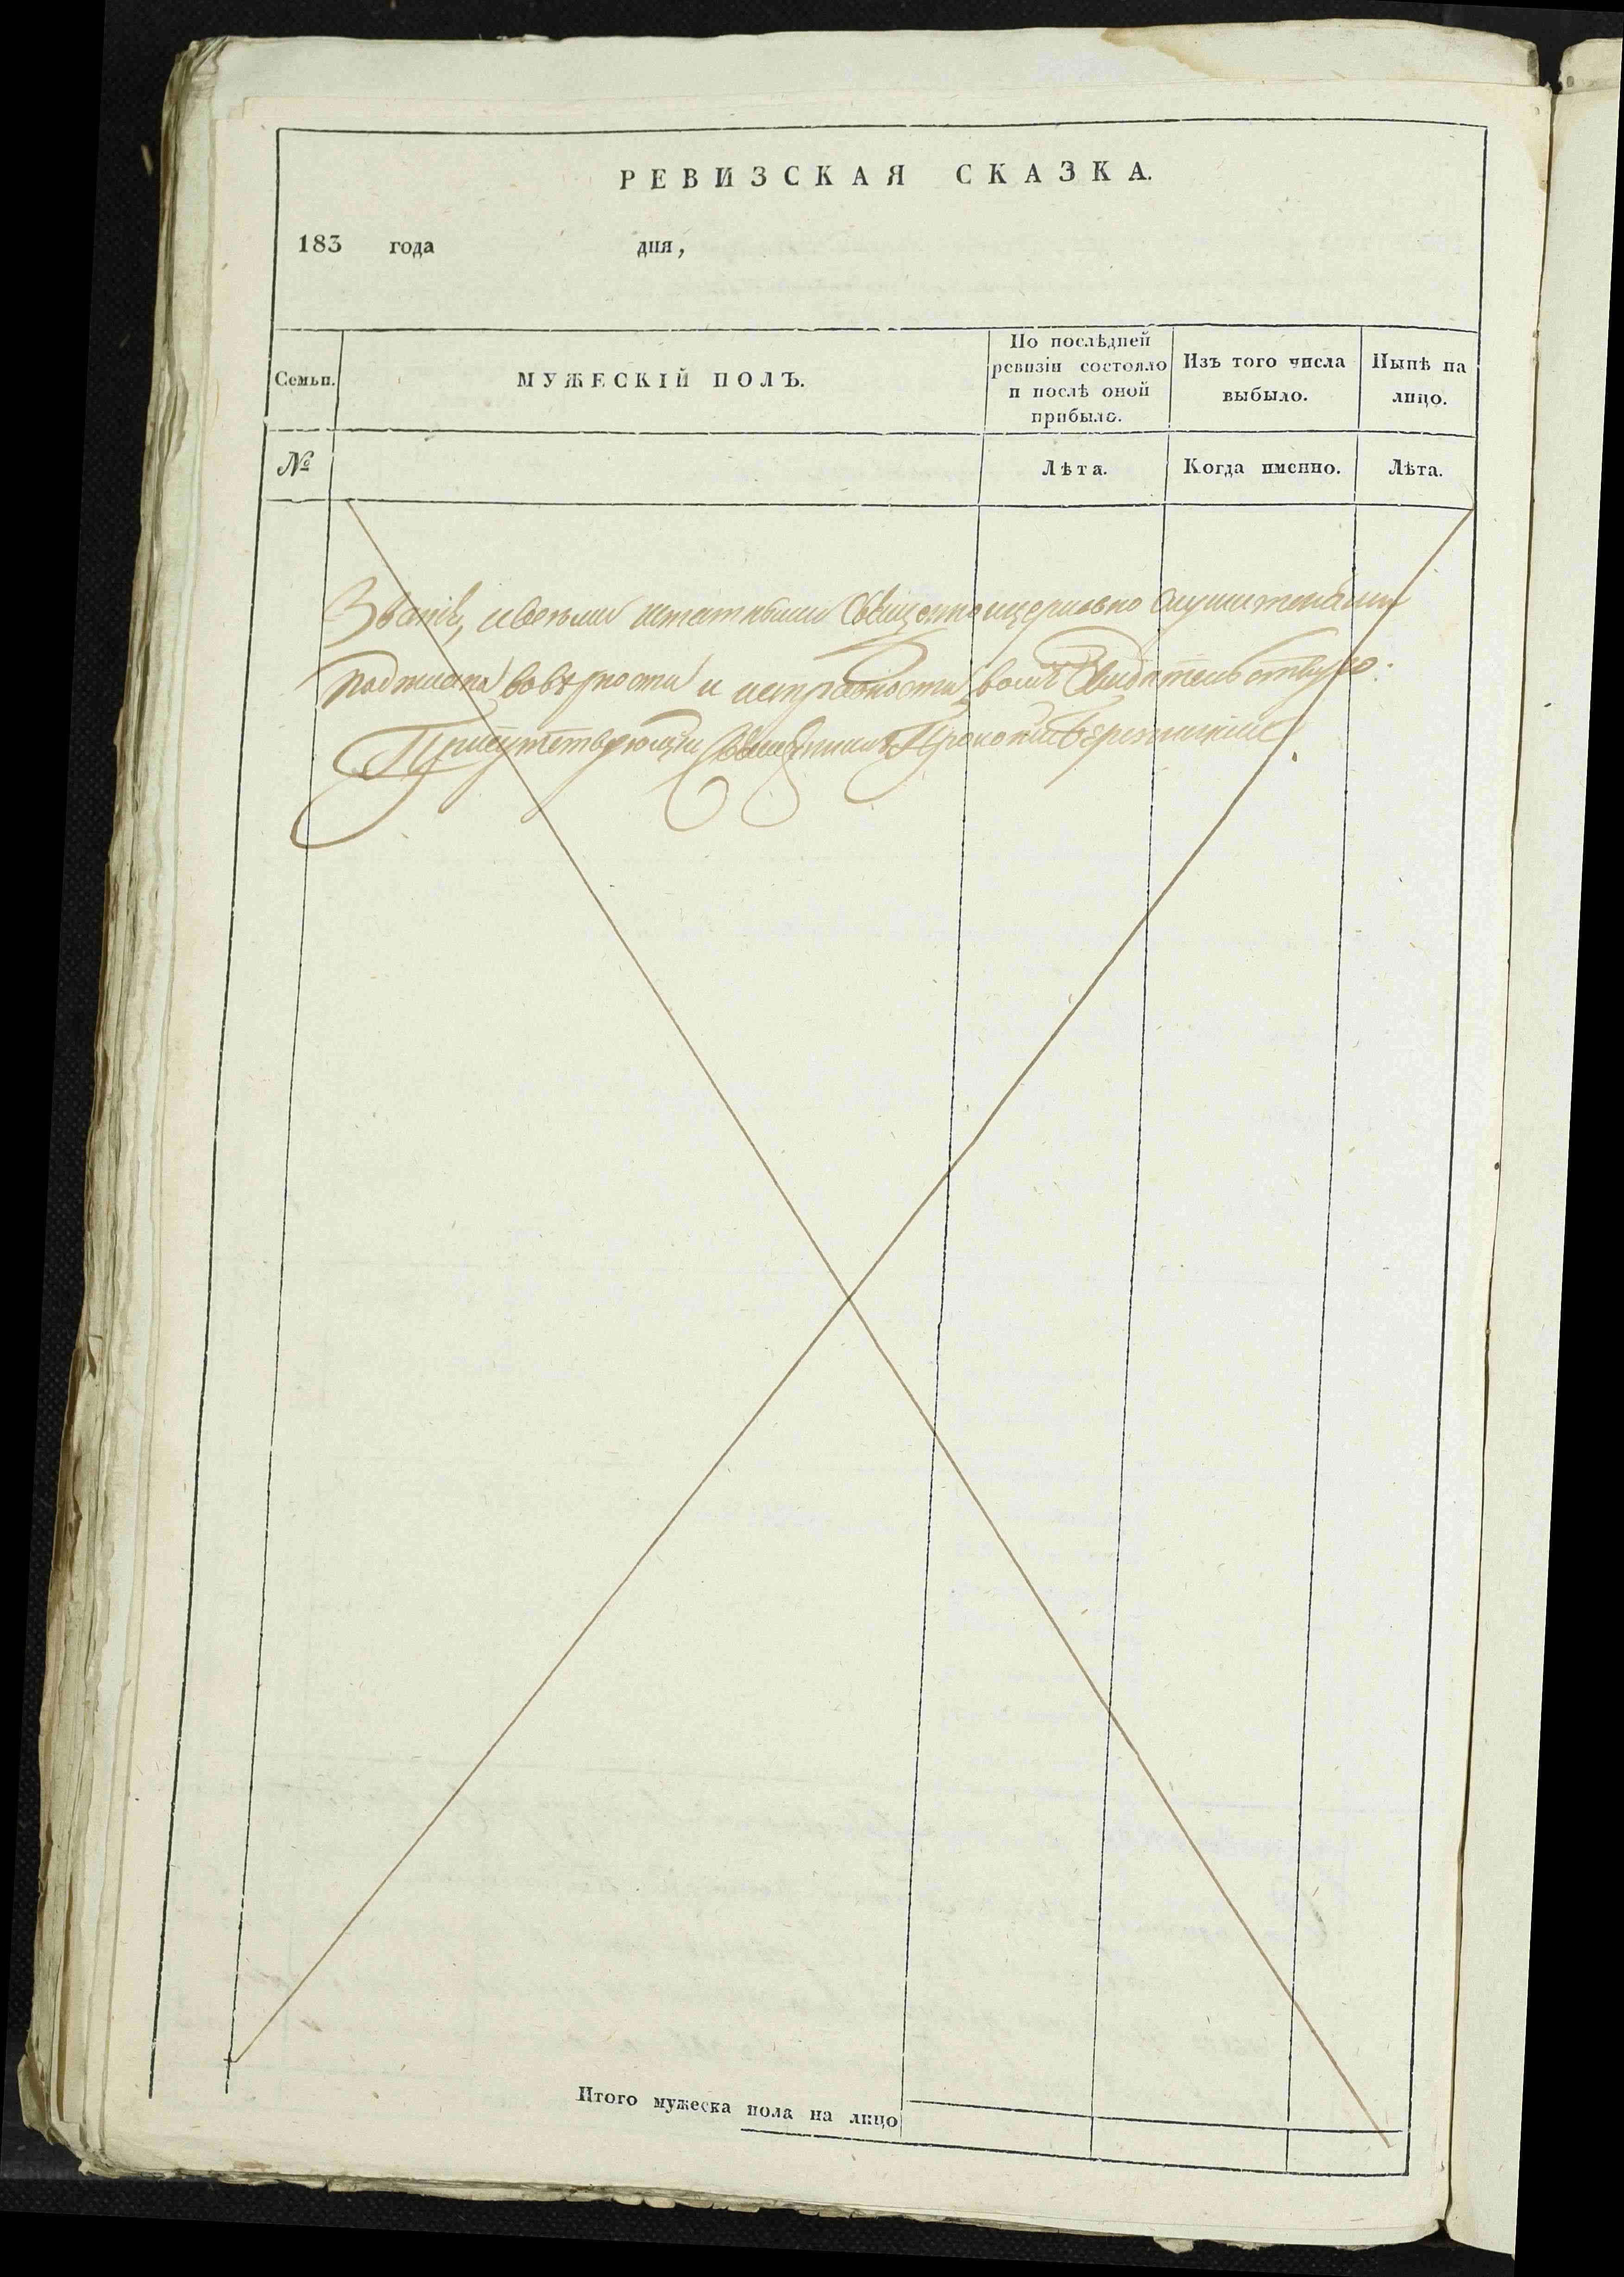 РЕВИЗСКАЯ СКАЗКА.
183 года дня,
Семьи.
МУЖЕСКІЙ ПОЛЪ.
По послѣдней ревизіи состояло и послѣ оной прибыло.
Изъ того числа выбыло.
Нынѣ на лицо.
№
Лѣта.
Когда именно.
Лѣта.
священноицерковно служителями
вовѣрности и исправности Свидѣтельствую:
Присутствующій Священникъ Прокопій Березницкій
Итого мужеска пола на лицо